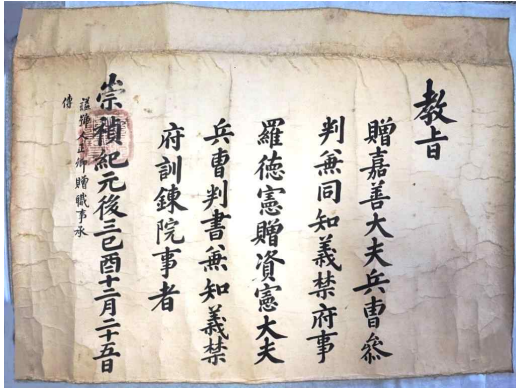 教旨
贈嘉善大夫兵曹參
判兼同知義禁府事
羅德憲贈資憲大夫
兵曹判書兼知義禁
府訓鍊院事者
崇禎紀元後三己酉十二月二十五日
諡號人正卿贈職事承
傳